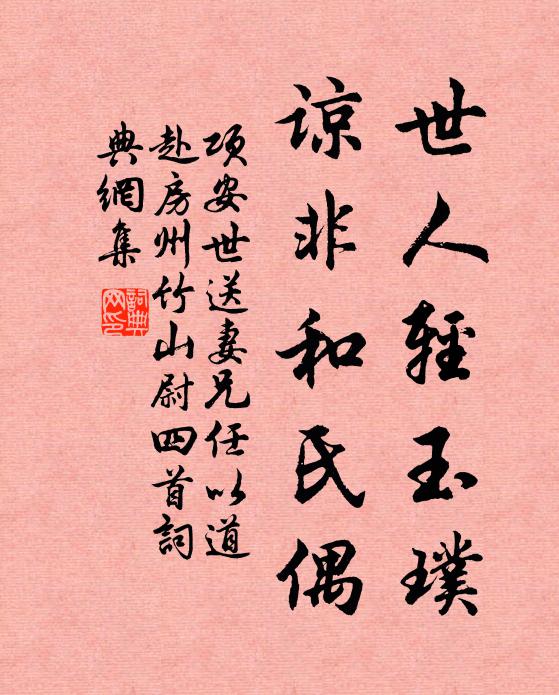 世人輕玉璞
諒非和氏偶
項安世送妻兄任以道
赴房州竹山尉四首詞
典網集
詞典网印